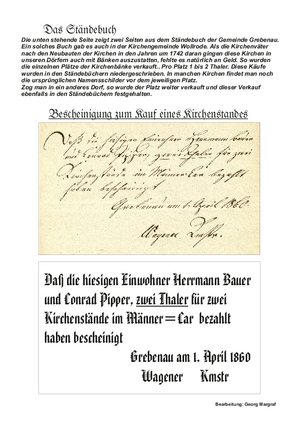 Das Ständebuch
Die unten stehende Seite zeigt zwei Seiten aus dem Ständebuch der Gemeinde Grebenau.
Ein solches Buch gab es auch in der Kirchengemeinde Wollrode. Als die Kirchenväter
nach den Neubauten der Kirchen in den Jahren um 1742 daran gingen diese Kirchen in
unseren Dörfern auch mit Bänken auszustatten, fehlte es natürlich an Geld. So wurden
die einzelnen Plätze der Kirchenbänke verkauft.. Pro Platz 1 bis 2 Thaler. Diese Käufe
wurden in den Ständebüchern niedergeschrieben. In manchen Kirchen findet man noch
die ursprünglichen Namensschilder vor dem jeweiligen Platz.
Zog man in ein anderes Dorf, so wurde der Platz weiter verkauft und dieser Verkauf
ebenfalls in den Ständebüchern festgehalten.
Bescheinigung zum Kauf eines Kirchenstandes
Daß die hiesigen Einwohner Herrmann Bauer
und Conrad Pipper, zwei Thaler für zwei
Kirchenstände im Männer=Car bezahlt
haben bescheinigt
Grebenau am 1. April 1860
Wagener Kmstr
Daß die hiesigen Einwohner Herrmann Bauer
und Conrad Pipper, zwei Thaler für zwei
Kirchenstände im Männer=Car bezahlt
haben bescheinigt
Grebenau am 1. April 1860
Wagener Kmstr
Bearbeitung: Georg Margraf